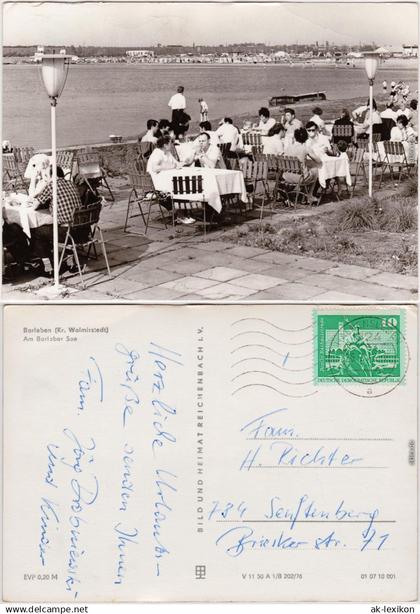 Barleben (Kr. Wolmirstedt)
Am Barleber See
Herzliche Urlaubs-
grüße senden Ihnen
Fam. Jörg
und Kinder
EVP 0,20 M
BILD UND HEIMAT REICHENBACH I. V.
V 11 50 A 1/B 202/76
01 07 10 001
10
DEUTSCHE DEMOKRATISCHE REPUBLIK
Fam.
H. Richter
784 Senftenberg
Briesker Str. 71
ak-lexikon
© www.ak-lexikon.com